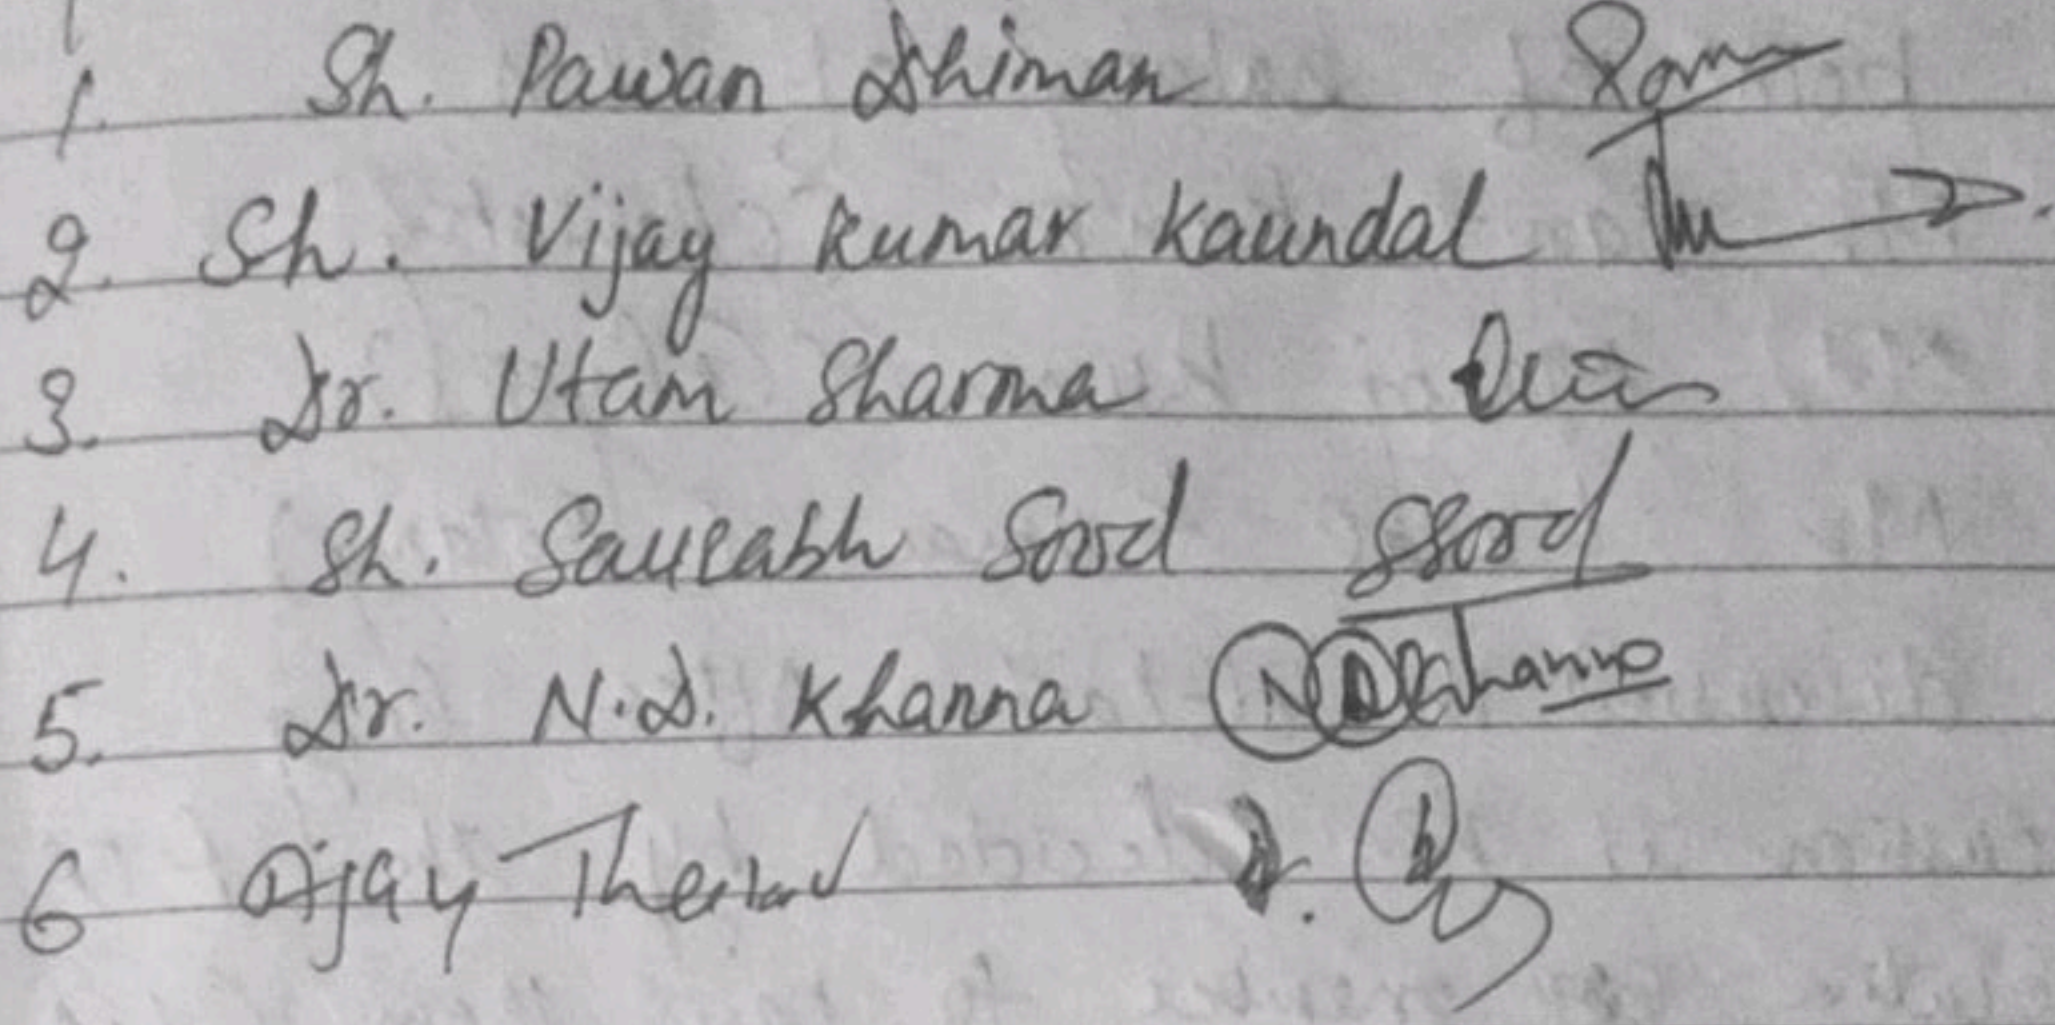 1. Sh. Pawan Dhiman
2. Sh. Vijay Kumar Kaundal
3. Dr. Utam Sharma
4. Sh. Saurabh Sood SSood
5. Dr. N.D. Khanna NDKhanna
6 Ajay